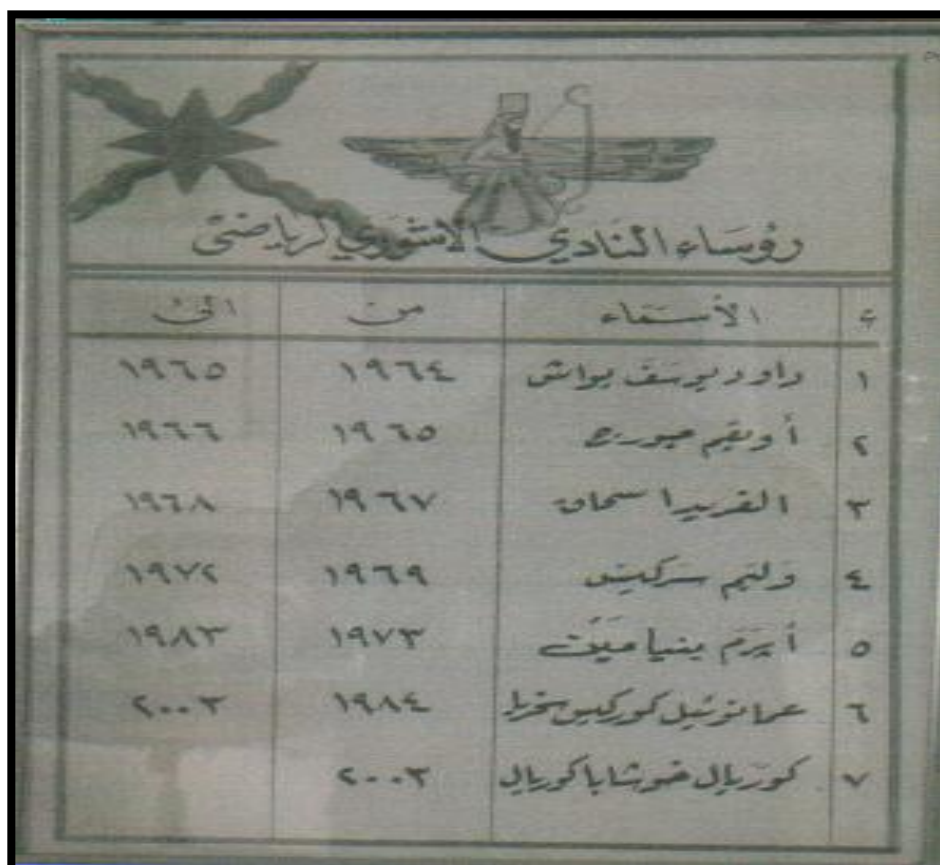 رؤساء النادي الاشوري الرياضي
ت الأسماء من الى
١ داود يوسف يواش ١٩٦٤ ١٩٦٥
٢ أويقم جورج ١٩٦٥ ١٩٦٦
٣ الفريد اسحاق ١٩٦٧ ١٩٦٨
٤ وليم سركيس ١٩٦٩ ١٩٧٢
٥ أبرم بنيامين ١٩٧٣ ١٩٨٣
٦ عمانوئيل كوركيس ١٩٨٤ ٢٠٠٣
٧ كوريال خوشابا كوريال ٢٠٠٣